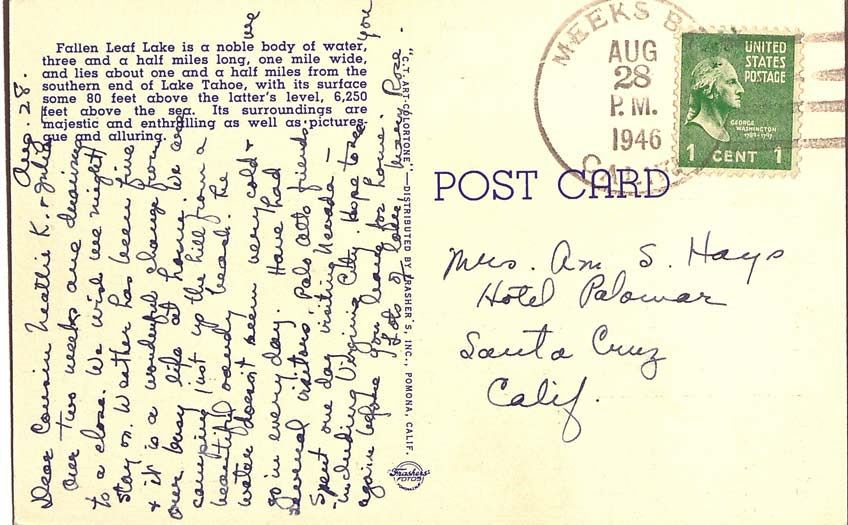 Fallen Leaf Lake is a noble body of water,
three and a half miles long, one mile wide,
and lies about one and a half miles from the
southern end of Lake Tahoe, with its surface
some 80 feet above the latter's level, 6,250
feet above the sea. Its surroundings are
majestic and enthralling as well as pictures-
que and alluring.
Aug. 28.
Dear Cousin Nettie K. &
Our two weeks are drawing
to a close. We wish we might
stay on. Weather has been fine
& it is a wonderful change from
our busy life at home. We are
camping just up the hill from a
beautiful sandy beach. The
water doesn't seem very cold &
we
go in every day. Have had
several visitors, Palo Alto friends
Spent one day visiting Nevada -
- including Virginia City. Hope to see
you
again before you leave for home.
Lots of love, Mary Rose
"C.T. ART-COLORTONE"—DISTRIBUTED BY FRASHER'S, INC., POMONA, CALIF.
Frashers
FOTOS
POST CARD
MEEKS B
AUG
28
P.M.
1946
UNITED
STATES
POSTAGE
GEORGE
WASHINGTON
1789-1797
1 CENT 1
Mrs. Am S. Hays
Hotel Palomar
Santa Cruz
Calif.